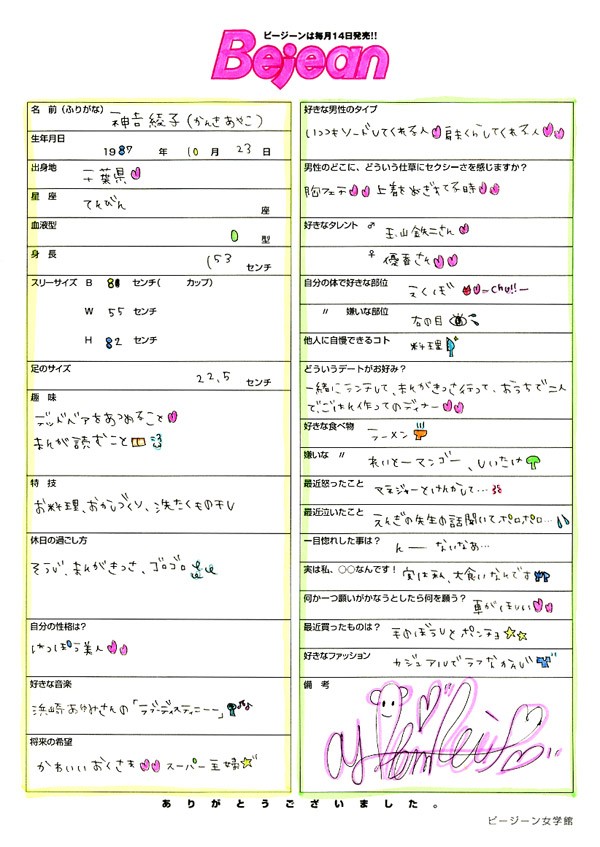 ビージーンは毎月14日発売!!
Bejean
名 前 (ふりがな) 神吉 綾子 (かんきあやこ)
生年月日
1987 年 10 月 23 日
出身地 千葉県
星 座 てんびん 座
血液型 O 型
身 長 153 センチ
スリーサイズ B 8 センチ( カップ)
W 55 センチ
H 82 センチ
足のサイズ 22.5 センチ
趣 味
デッドベアをあつめること
まんが読むこと
特 技
お料理、おかしづくり、洗たくもの干し
休日の過ごし方
そうじ、まんがきっさ、ゴロゴロ
自分の性格は?
はっぽう美人
好きな音楽
浜崎あゆみさんの「ラブデスティニー」
将来の希望
かわいいおくさま スーパー主婦
好きな男性のタイプ
いつもリードしてくれる人 してくれる人
男性のどこに、どういう仕草にセクシーさを感じますか?
胸フェチ 上着をぬぎすてる時
好きなタレント ♂ 玉山鉄二さん
♀ 優香さん
自分の体で好きな部位 えくぼ =chu!!—
〃 嫌いな部位 右の目
他人に自慢できるコト 料理
どういうデートがお好み?
一緒にランチして、まんがきっさ行って、おうちで二人
でごはん作ってのディナー
好きな食べ物 ラーメン
嫌いな 〃 れいとーマンゴー、しいたけ
最近怒ったこと マネジャーとけんかして…
最近泣いたこと えんぎの先生の話聞いてポロポロ…
一目惚れした事は? んー ないなぁ…
実は私、○○なんです! 実は私、大食いなんです
何か一つ願いがかなうとしたら何を願う? 車がほしい
最近買ったものは? 毛のぼうしとポンチョ
好きなファッション カジュアルでラフなかんじ
備 考
ありがとうございました。
ビージーン女学館